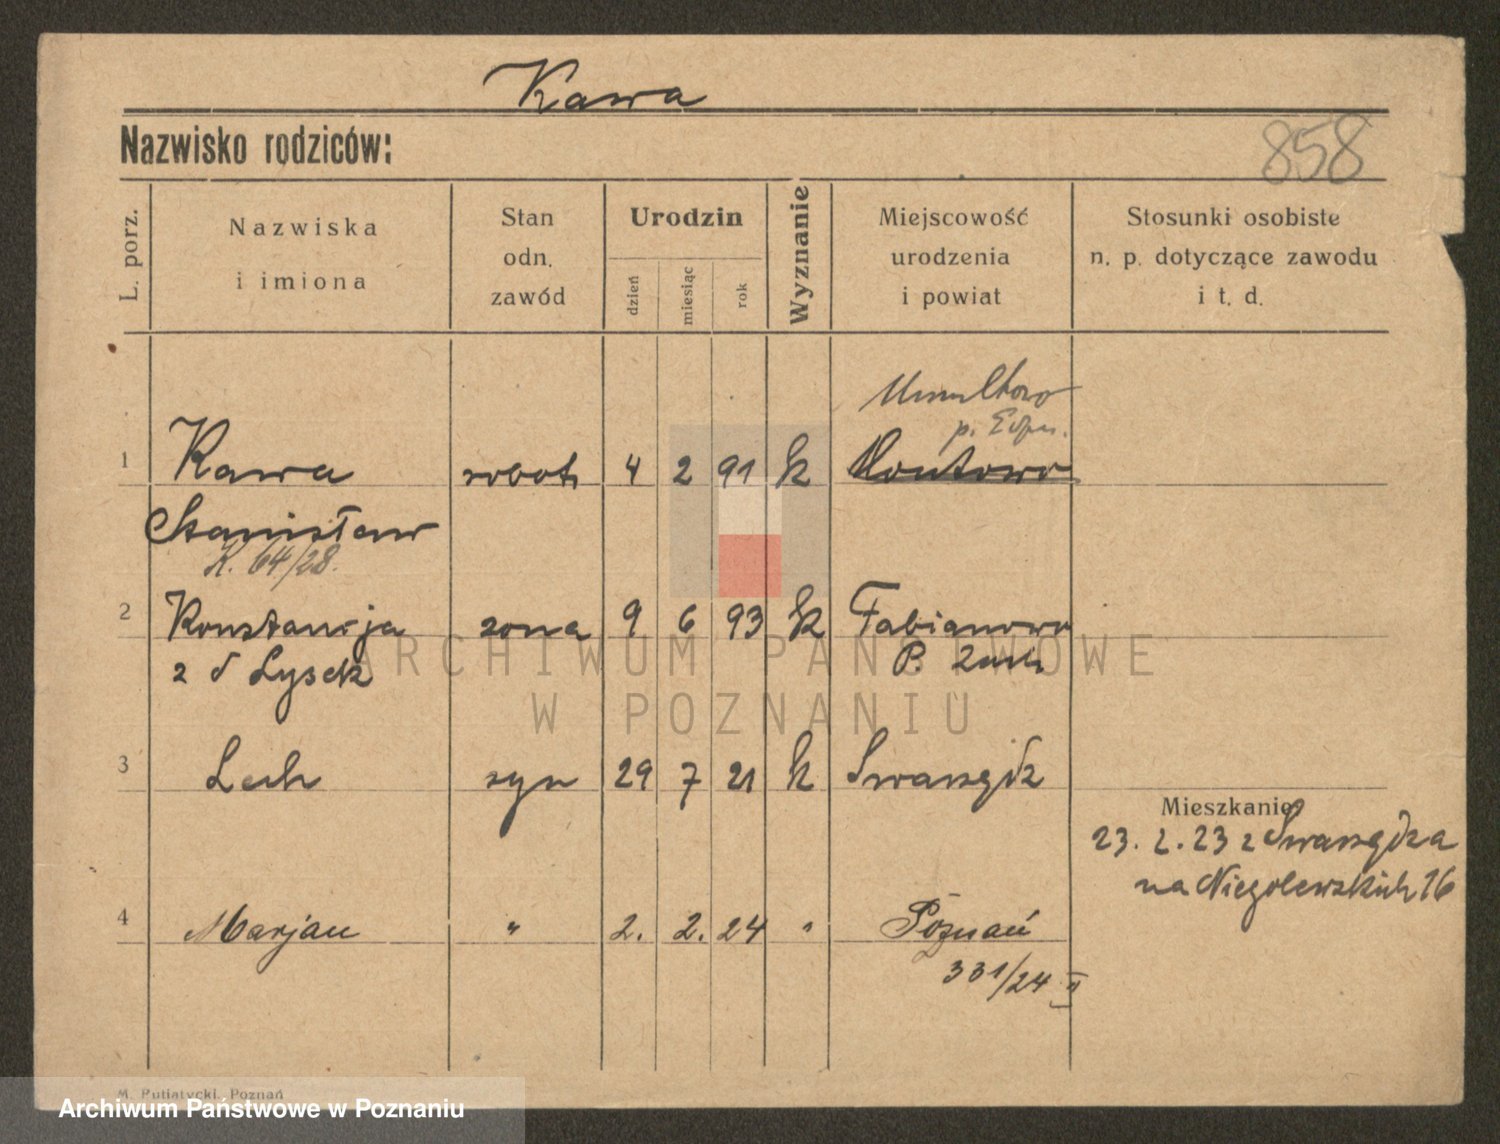 Kawa
Nazwisko rodziców:
858
L. porz.
Nazwiska
i imiona
Stan
odn.
zawód
Urodzin
dzień
miesiąc
rok
Wyznanie
Miejscowość
urodzenia
i powiat
Stosunki osobiste
n. p. dotyczące zawodu
i t. d.
Umultowo
1 Kawa robot. 4 2 91 k
Stanisław
K. 64/28.
2 Konstancja zona 9 6 93 k Fabianowo
z d Lysek P.
3 Lech syn 29 7 21 k Swarzędz
Mieszkanie
23. 2. 23 z Swarzędza
na Niegolewskich 16
4 Marjan " 2. 2. 24 " Poznań
331/24 II
M. Putiatycki, Poznań
ARCHIWUM PAŃSTWOWE
W POZNANIU
Archiwum Państwowe w Poznaniu